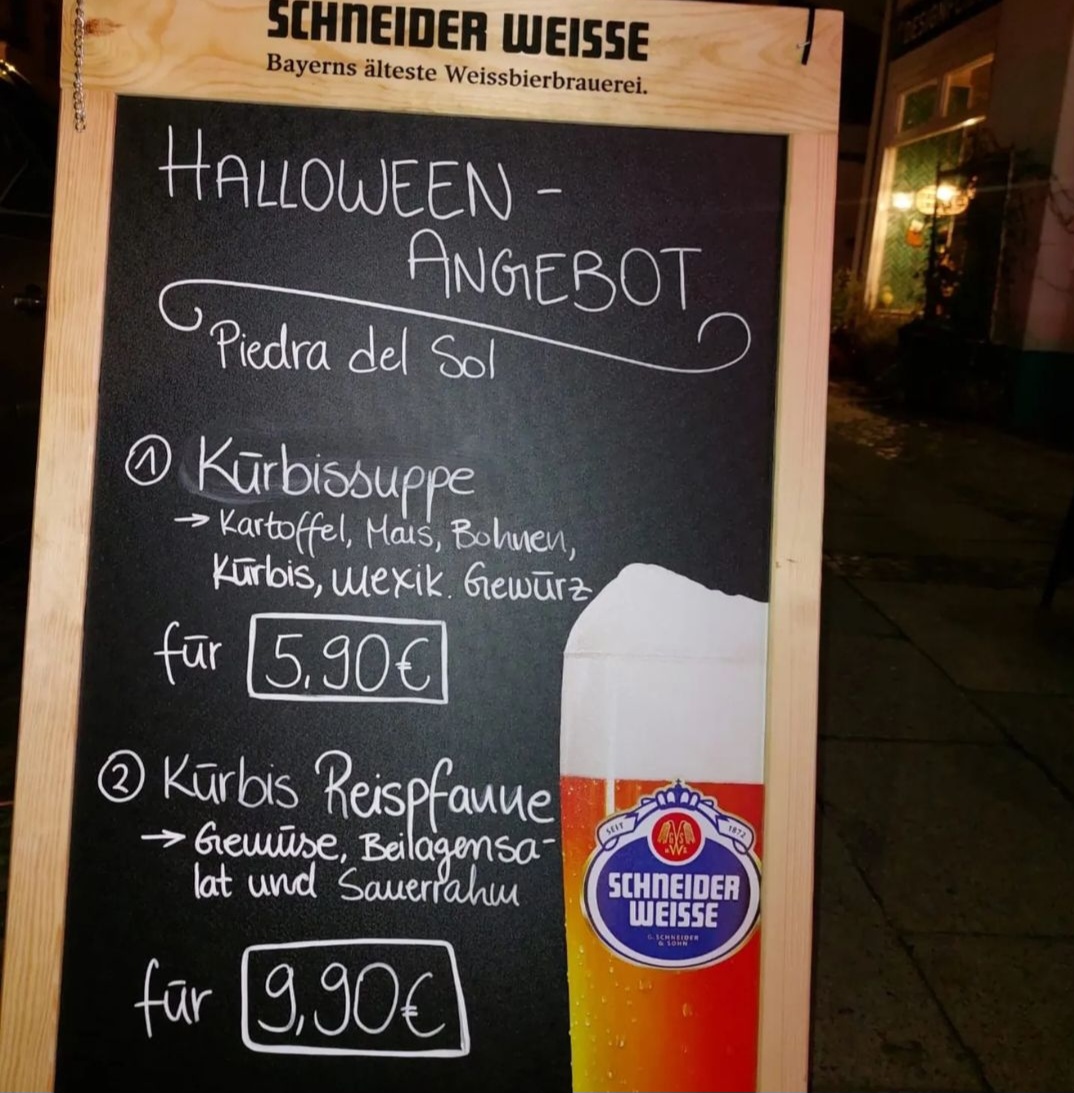 SCHNEIDER WEISSE
Bayerns älteste Weissbierbrauerei.
DESIGN
HALLOWEEN-
ANGEBOT
Piedra del Sol
① Kürbissuppe
→ Kartoffel, Mais, Bohnen,
Kürbis, mexik. Gewürz
für 5,90€
② Kürbis Reispfanne
→ Gemüse, Beilagensa-
lat und Sauerrahm
für 9,90€
SEIT 1872
SCHNEIDER
WEISSE
G. SCHNEIDER
& SOHN